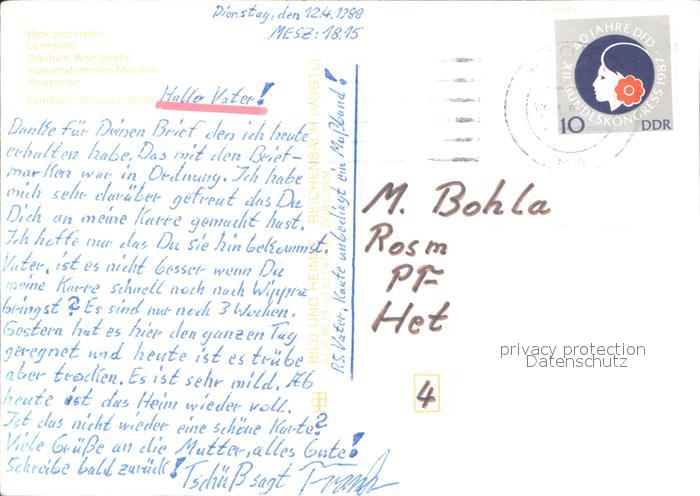 Dienstag, den 12.4.1988
MESZ: 18.15
Blick zum Hafen
Leninplatz
Friedrich-Wolf-Straße
Kulturhistorisches Museum
Knieperter
Farbfotos: Berlin
Hallo Vater!
Danke für Deinen Brief den ich heute
erhalten habe. Das mit den Brief-
marken war in Ordnung. Ich habe
mich sehr darüber gefreut das Du
Dich an meine Karre gemacht hast.
Ich hoffe nur das Du sie hin bekommst.
Vater, ist es nicht besser wenn Du
meine Karre schnell noch nach Wippra
bringst? Es sind nur noch 3 Wochen.
Gestern hat es hier den ganzen Tag
geregnet und heute ist es trübe
aber trocken. Es ist sehr mild. Ab
heute ist das Heim wieder voll.
Ist das nicht wieder eine schöne Karte?
Viele Grüße an die Mutter, alles Gute!
Schreibe bald zurück! Tschüß sagt Frank
P.S. Vater, kaufe unbedingt ein Maßband!
BILD UND HEIMAT REICHENBACH (VOGTL)
40 JAHRE DFD
XII. BUNDESKONGRESS 1987
10 DDR
M. Bohla
Rosm
PF
Het
4
privacy protection
Datenschutz